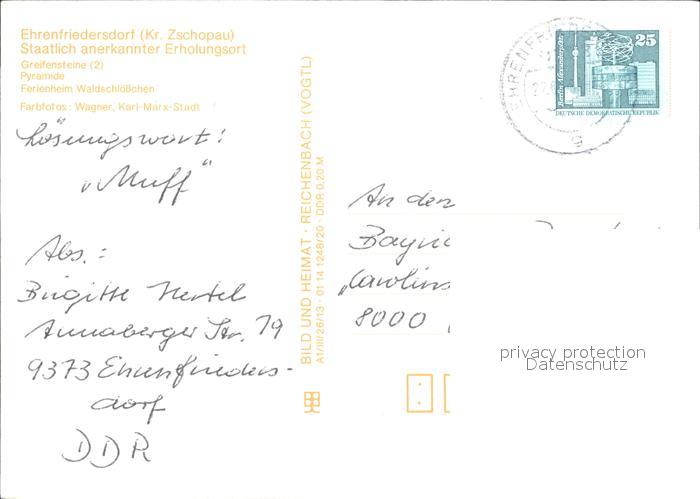 Ehrenfriedersdorf (Kr. Zschopau)
Staatlich anerkannter Erholungsort
Greifensteine (2)
Pyramide
Ferienheim Waldschlößchen
Farbfotos: Wagner, Karl-Marx-Stadt
Lösungswort:
"Muff"
Abs.:
Brigitte Hertel
Annaberger Str. 79
9373 Ehrenfrieders-
dorf
DDR
BILD UND HEIMAT · REICHENBACH (VOGTL)
A1/III/26/13 · 01 14 1248/20 · DDR 0,20 M
25
Berlin, Alexanderplatz
DEUTSCHE DEMOKRATISCHE REPUBLIK
An den
8000
privacy protection
Datenschutz